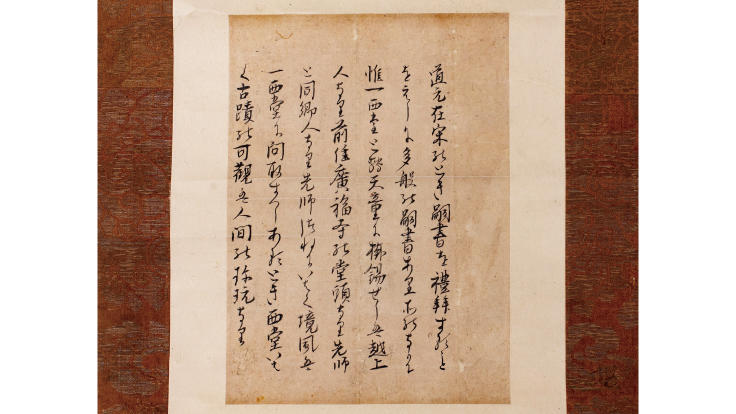 道元在宋のとき嗣書を禮拜すること
をえしに多般の嗣書ありきそのなかに
惟一西堂とて天童に掛錫せしは越上
人なり前住廣福寺の堂頭なり先師
と同郷人なり先師つねにいはく境風は
一西堂に問取すへしあるとき西堂いは
く古蹟の可觀は人間の珍玩なり